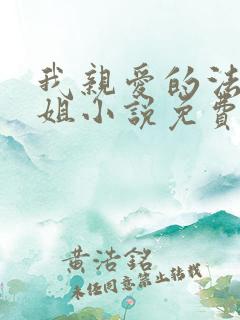 我親愛的法
姐小說免費
黃浩銘
未经同意禁止转载